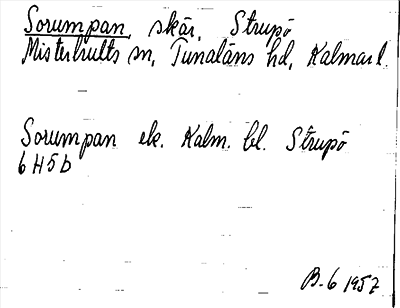 Sorumpan, skär, Strupö
Misterhults sn, Tunaläns hd, Kalmar l.
Sorumpan ek. Kalm. bl. Strupö
6H5b
B-6 1957